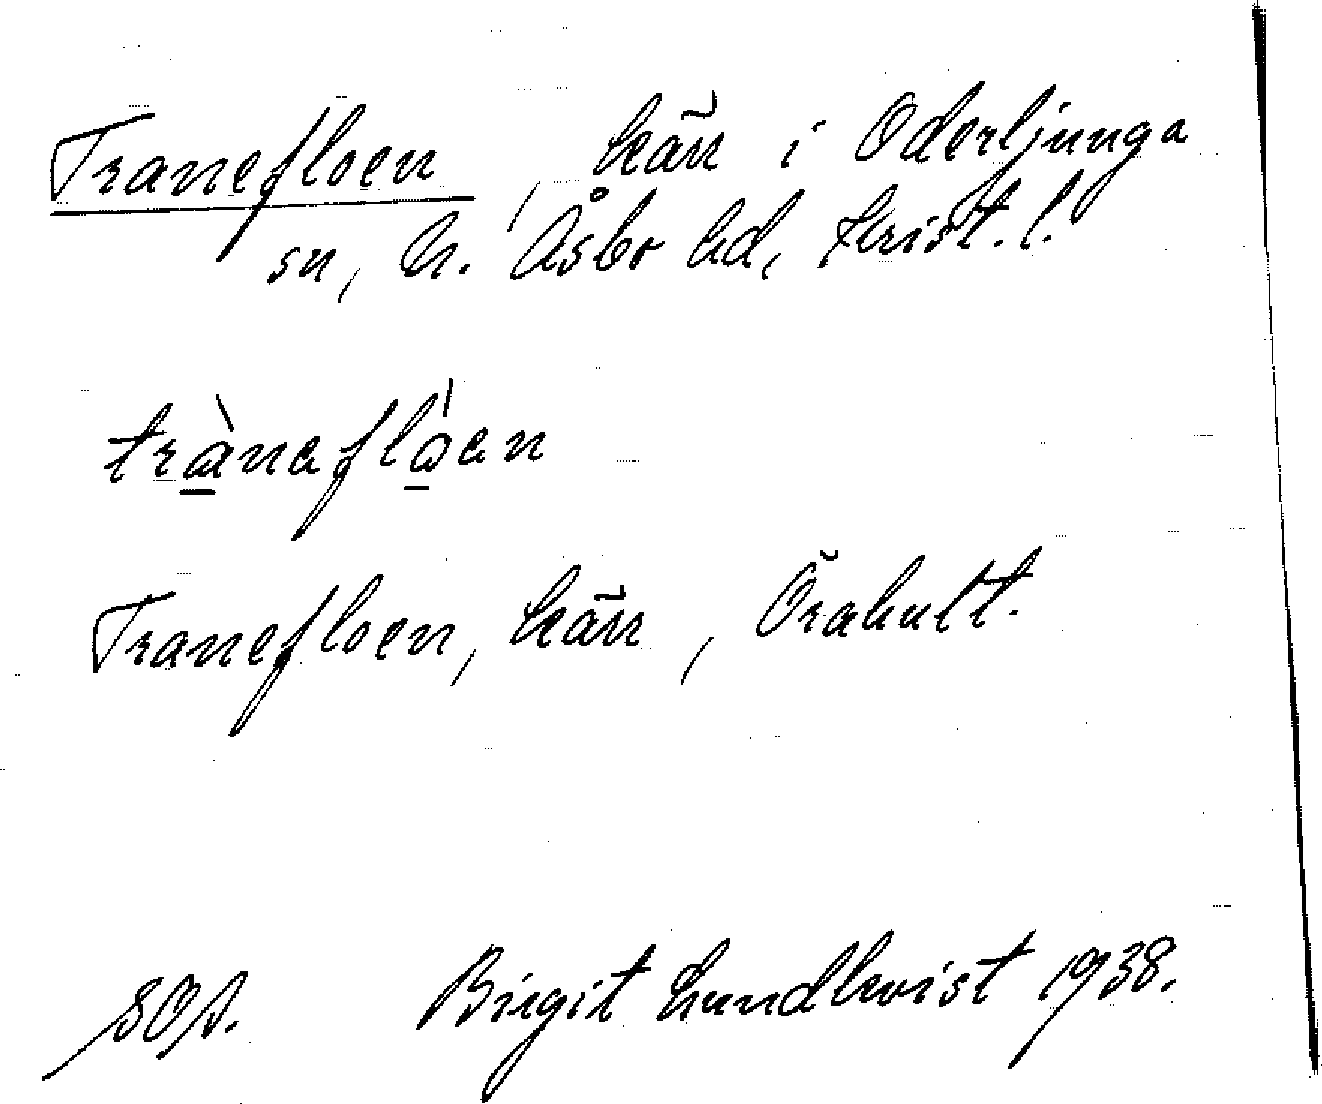 Tranefloen, kärr i Oderljunga
sn, N. Åsbo hd, Krist. l.
trànaflóen
Tranefloen, kärr, Örahult.
SOA. Birgit Lundkvist 1938.